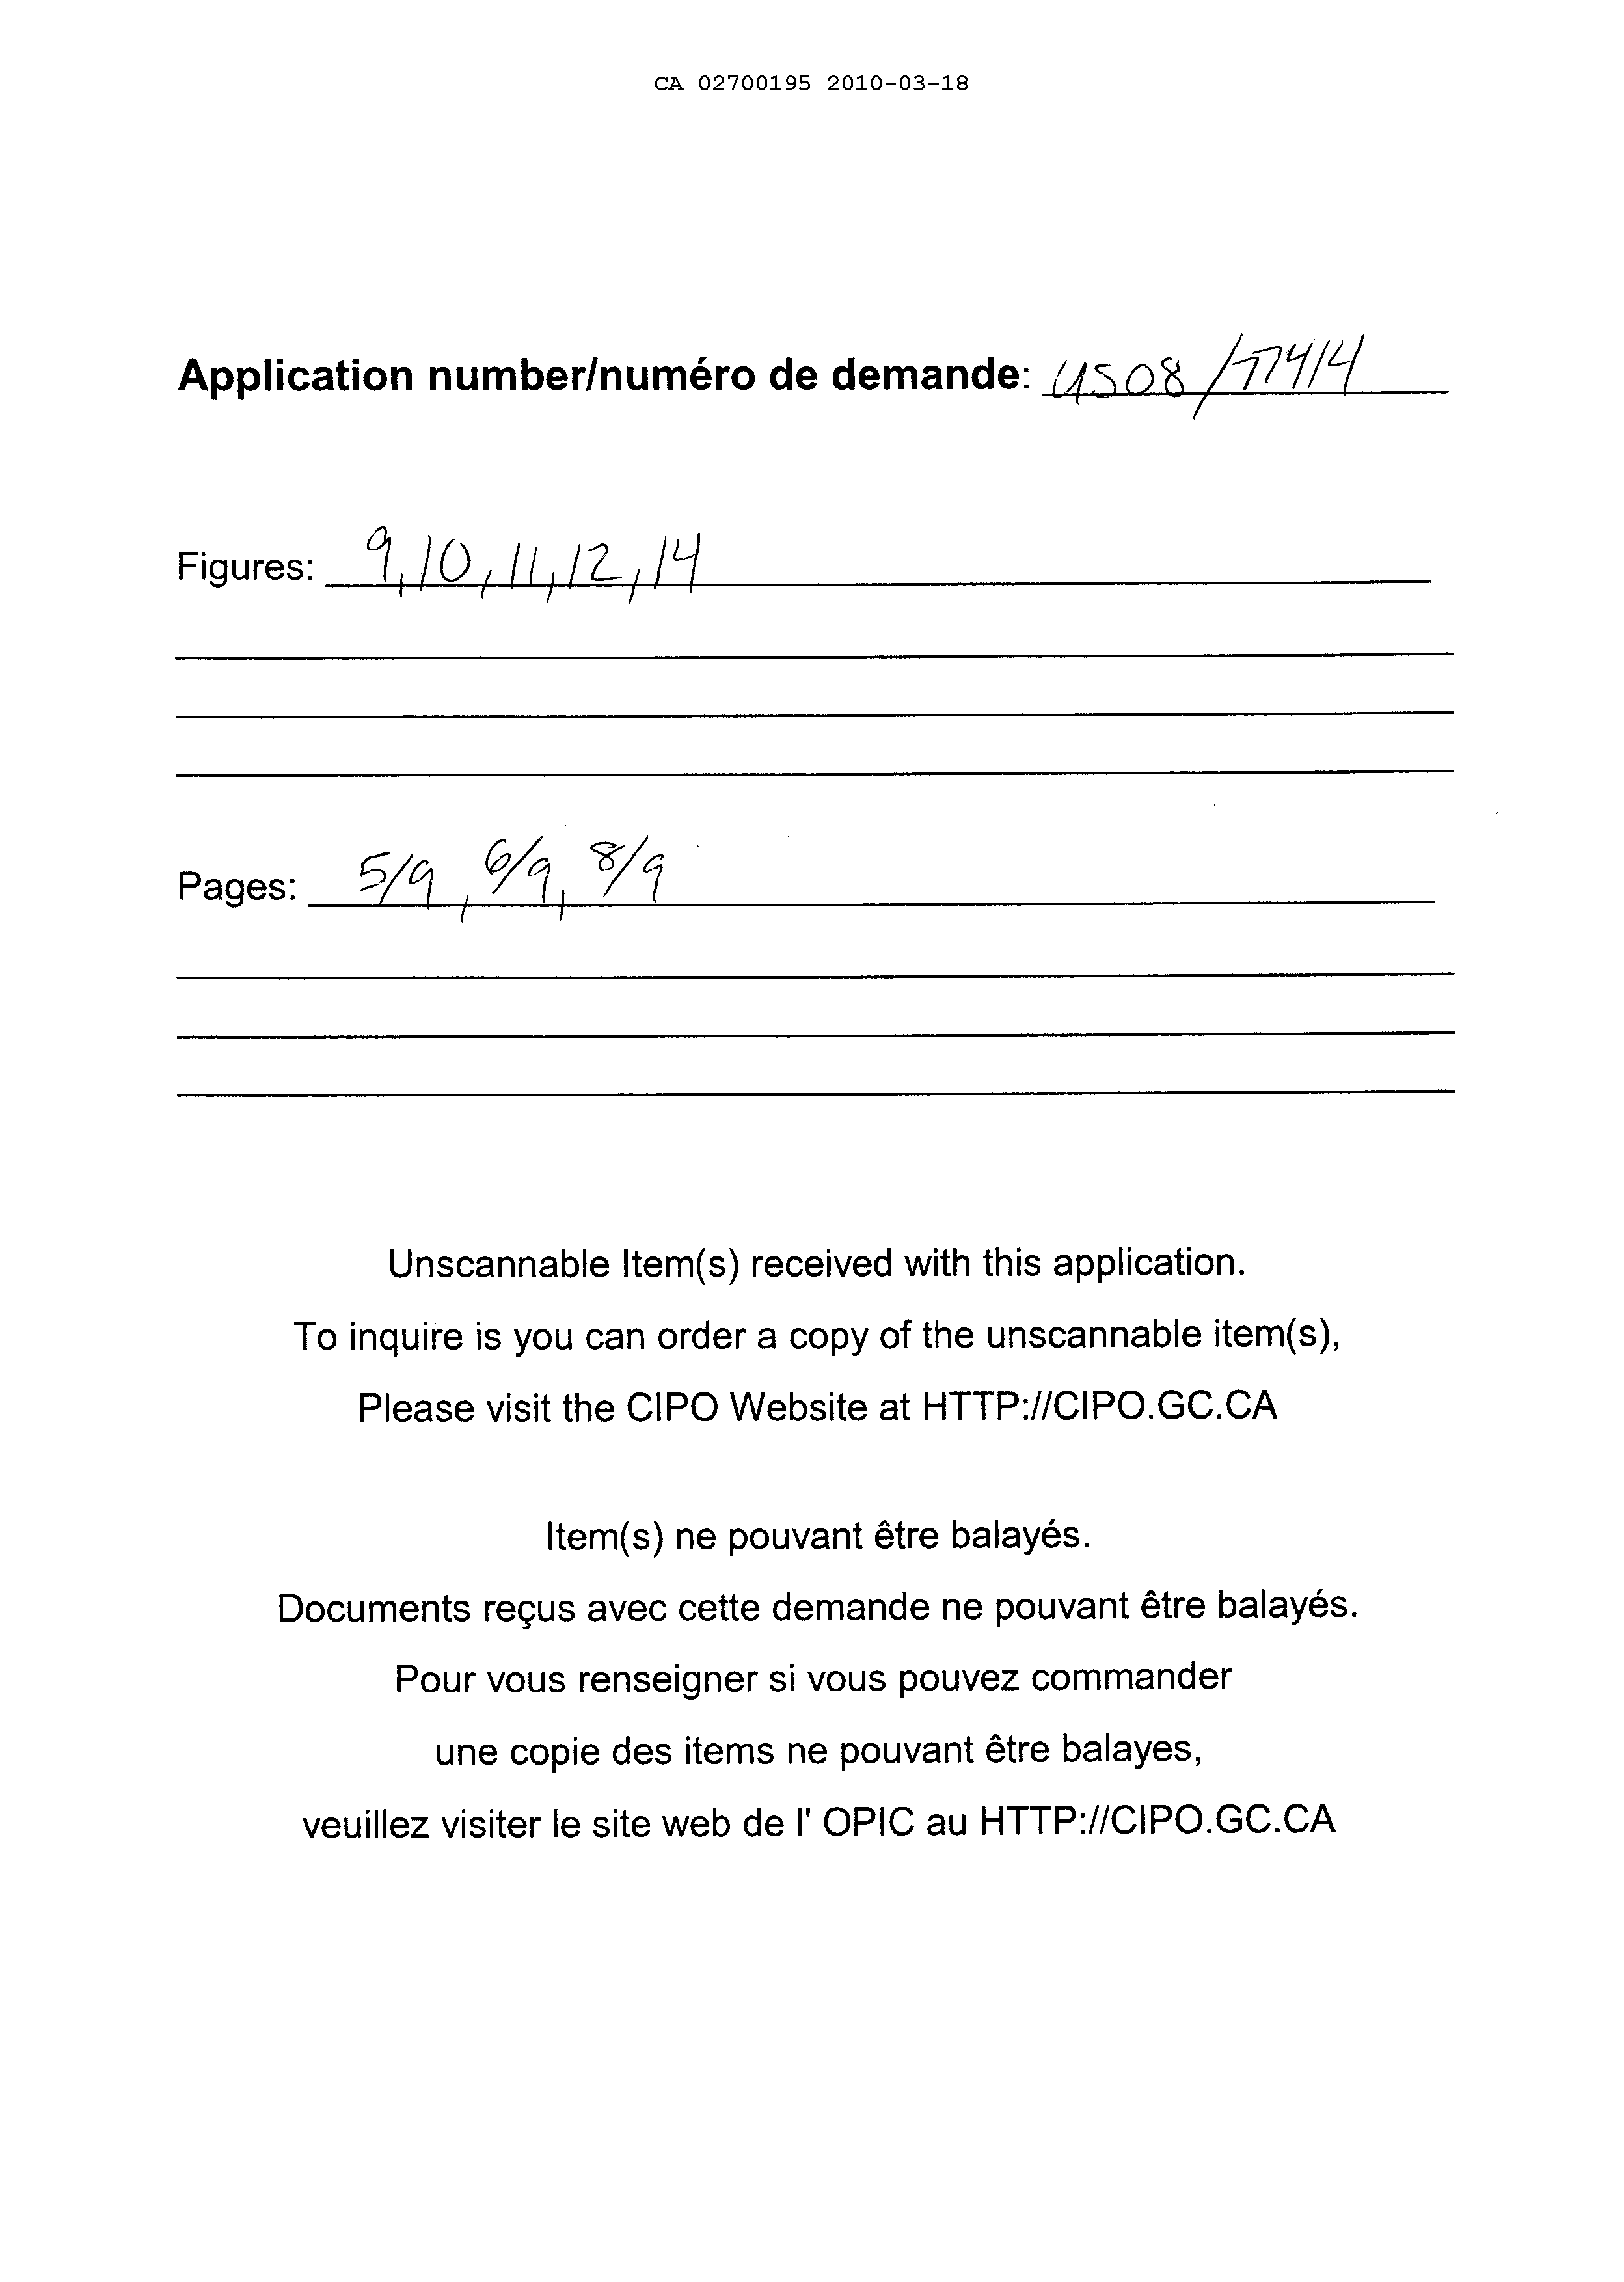 CA 02700195 2010-03-18
Application number/numéro de demande: US08/77414
Figures: 9,10,11,12,14
Pages: 5/9, 6/9, 8/9
Unscannable Item(s) received with this application.
To inquire is you can order a copy of the unscannable item(s),
Please visit the CIPO Website at HTTP://CIPO.GC.CA
Item(s) ne pouvant être balayés.
Documents reçus avec cette demande ne pouvant être balayés.
Pour vous renseigner si vous pouvez commander
une copie des items ne pouvant être balayes,
veuillez visiter le site web de l' OPIC au HTTP://CIPO.GC.CA